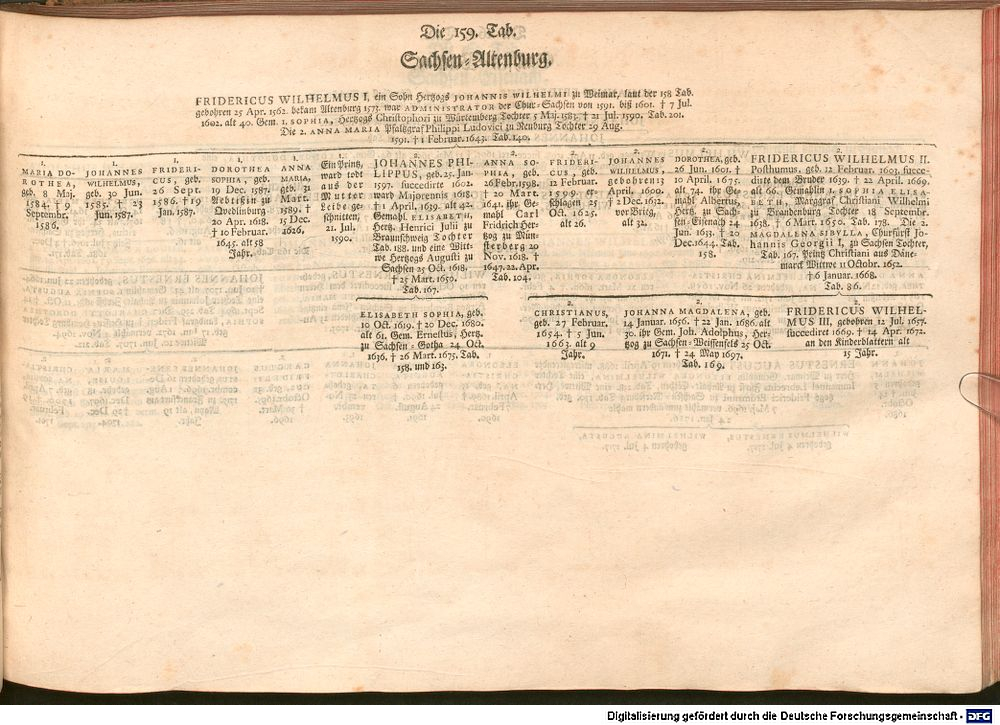 Die 159. Tab.
Sachsen-Altenburg.
FRIDERICUS WILHELMUS I, ein Sohn Hertzogs JOHANNIS WILHELMI zu Weimar, laut der 158 Tab.
gebohren 25 Apr. 1562. bekam Altenburg 1573. war ADMINISTRATOR der Chur-Sachsen von 1591. bis 1601. † 7 Jul.
1602. alt 40. Gem. 1. SOPHIA, Hertzogs Christophori zu Würtemberg Tochter 5 Maj. 1583. † 21 Jul. 1590. Tab. 201.
Die 2. ANNA MARIA Pfaltzgraf Philippi Ludovici zu Neuburg Tochter 29 Aug.
1591. † 1 Februar. 1643. Tab. 140.
1.
MARIA DO-
ROTHEA,
geb. 8 Maj.
1584. † 9
Septembr.
1586.
1.
JOHANNES
WILHELMUS,
geb. 30 Jun.
1585. † 23
Jun. 1587.
1.
FRIDERI-
CUS, geb.
26 Sept.
1586. † 19
Jan. 1587.
1.
DOROTHEA
SOPHIA, geb.
19 Dec. 1587.
Aebtißin zu
Qvedlinburg
20 Apr. 1618.
† 10 Februar.
1645. alt 58
Jahr.
1.
ANNA
MARIA,
geb. 31
Mart.
1589. †
15 Dec.
1626.
1.
Ein Printz,
ward todt
aus der
Mutter
Leibe ge-
schnitten,
21. Jul.
1590.
2.
JOHANNES PHI-
LIPPUS, geb. 25. Jan.
1597. succedirte 1602.
ward Majorennis 1618.
† 1 April. 1639. alt 42.
Gemahl. ELISABETH,
Hertz. Henrici Julii zu
Braunschweig Tochter
Tab. 188. und eine Witt-
we Hertzogs Augusti zu
Sachsen 25 Oct. 1618.
† 25 Mart. 1650.
Tab. 167.
2.
ANNA SO-
PHIA, geb.
26 Febr. 1598.
† 20 Mart.
1641. ihr Ge-
mahl Carl
Fridrich Her-
tzog zu Mün-
sterberg 20
Nov. 1618. †
1647. 22. Apr.
Tab. 104.
2.
FRIDERI-
CUS, geb.
12 Februar.
1599. er-
schlagen 25
Oct. 1625.
alt 26.
2.
JOHANNES
WILHELMUS,
gebohren 13
April. 1600.
† 2 Dec. 1632.
vor Brieg,
alt 32.
2.
DOROTHEA, geb.
26 Jun. 1601. †
10 April. 1675.
alt 74. ihr Ge-
mahl Albertus,
Hertz. zu Sach-
sen-Eisenach 24
Jun. 1633. † 20
Dec. 1644. Tab.
158.
2.
FRIDERICUS WILHELMUS II.
Posthumus, geb. 12 Februar. 1603. succe-
dirte dem Bruder 1639. † 22 April. 1669.
alt 66. Gemahlin 1. SOPHIA ELISA-
BETH, Marggraf Christiani Wilhelmi
zu Brandenburg Tochter 18 Septembr.
1638. † 6 Mart. 1650. Tab. 178. Die 2.
MAGDALENA SIBYLLA, Churfürst Jo-
hannis Georgii I, zu Sachsen Tochter,
Tab. 167. Printz Christiani aus Däne-
marck Wittwe 11 Octobr. 1652.
† 6 Januar. 1668.
Tab. 86.
ELISABETH SOPHIA, geb.
10 Oct. 1619. † 20 Dec. 1680.
alt 61. Gem. Ernestus, Hertz.
zu Sachsen-Gotha 24 Oct.
1636. † 26 Mart. 1675. Tab.
158. und 163.
2.
CHRISTIANUS,
geb. 27 Februar.
1654. † 5 Jun.
1663. alt 9
Jahr.
2.
JOHANNA MAGDALENA, geb.
14 Januar. 1656. † 22 Jan. 1686. alt
30. ihr Gem. Joh. Adolphus, Her-
tzog zu Sachsen-Weisenfels 25 Oct.
1671. † 24 May 1697.
Tab. 169.
2.
FRIDERICUS WILHEL-
MUS III, gebohren 12 Jul. 1657.
succediret 1669. † 14 Apr. 1672.
an den Kinderblattern alt
15 Jahr.
Digitalisierung gefördert durch die Deutsche Forschungsgemeinschaft - DFG